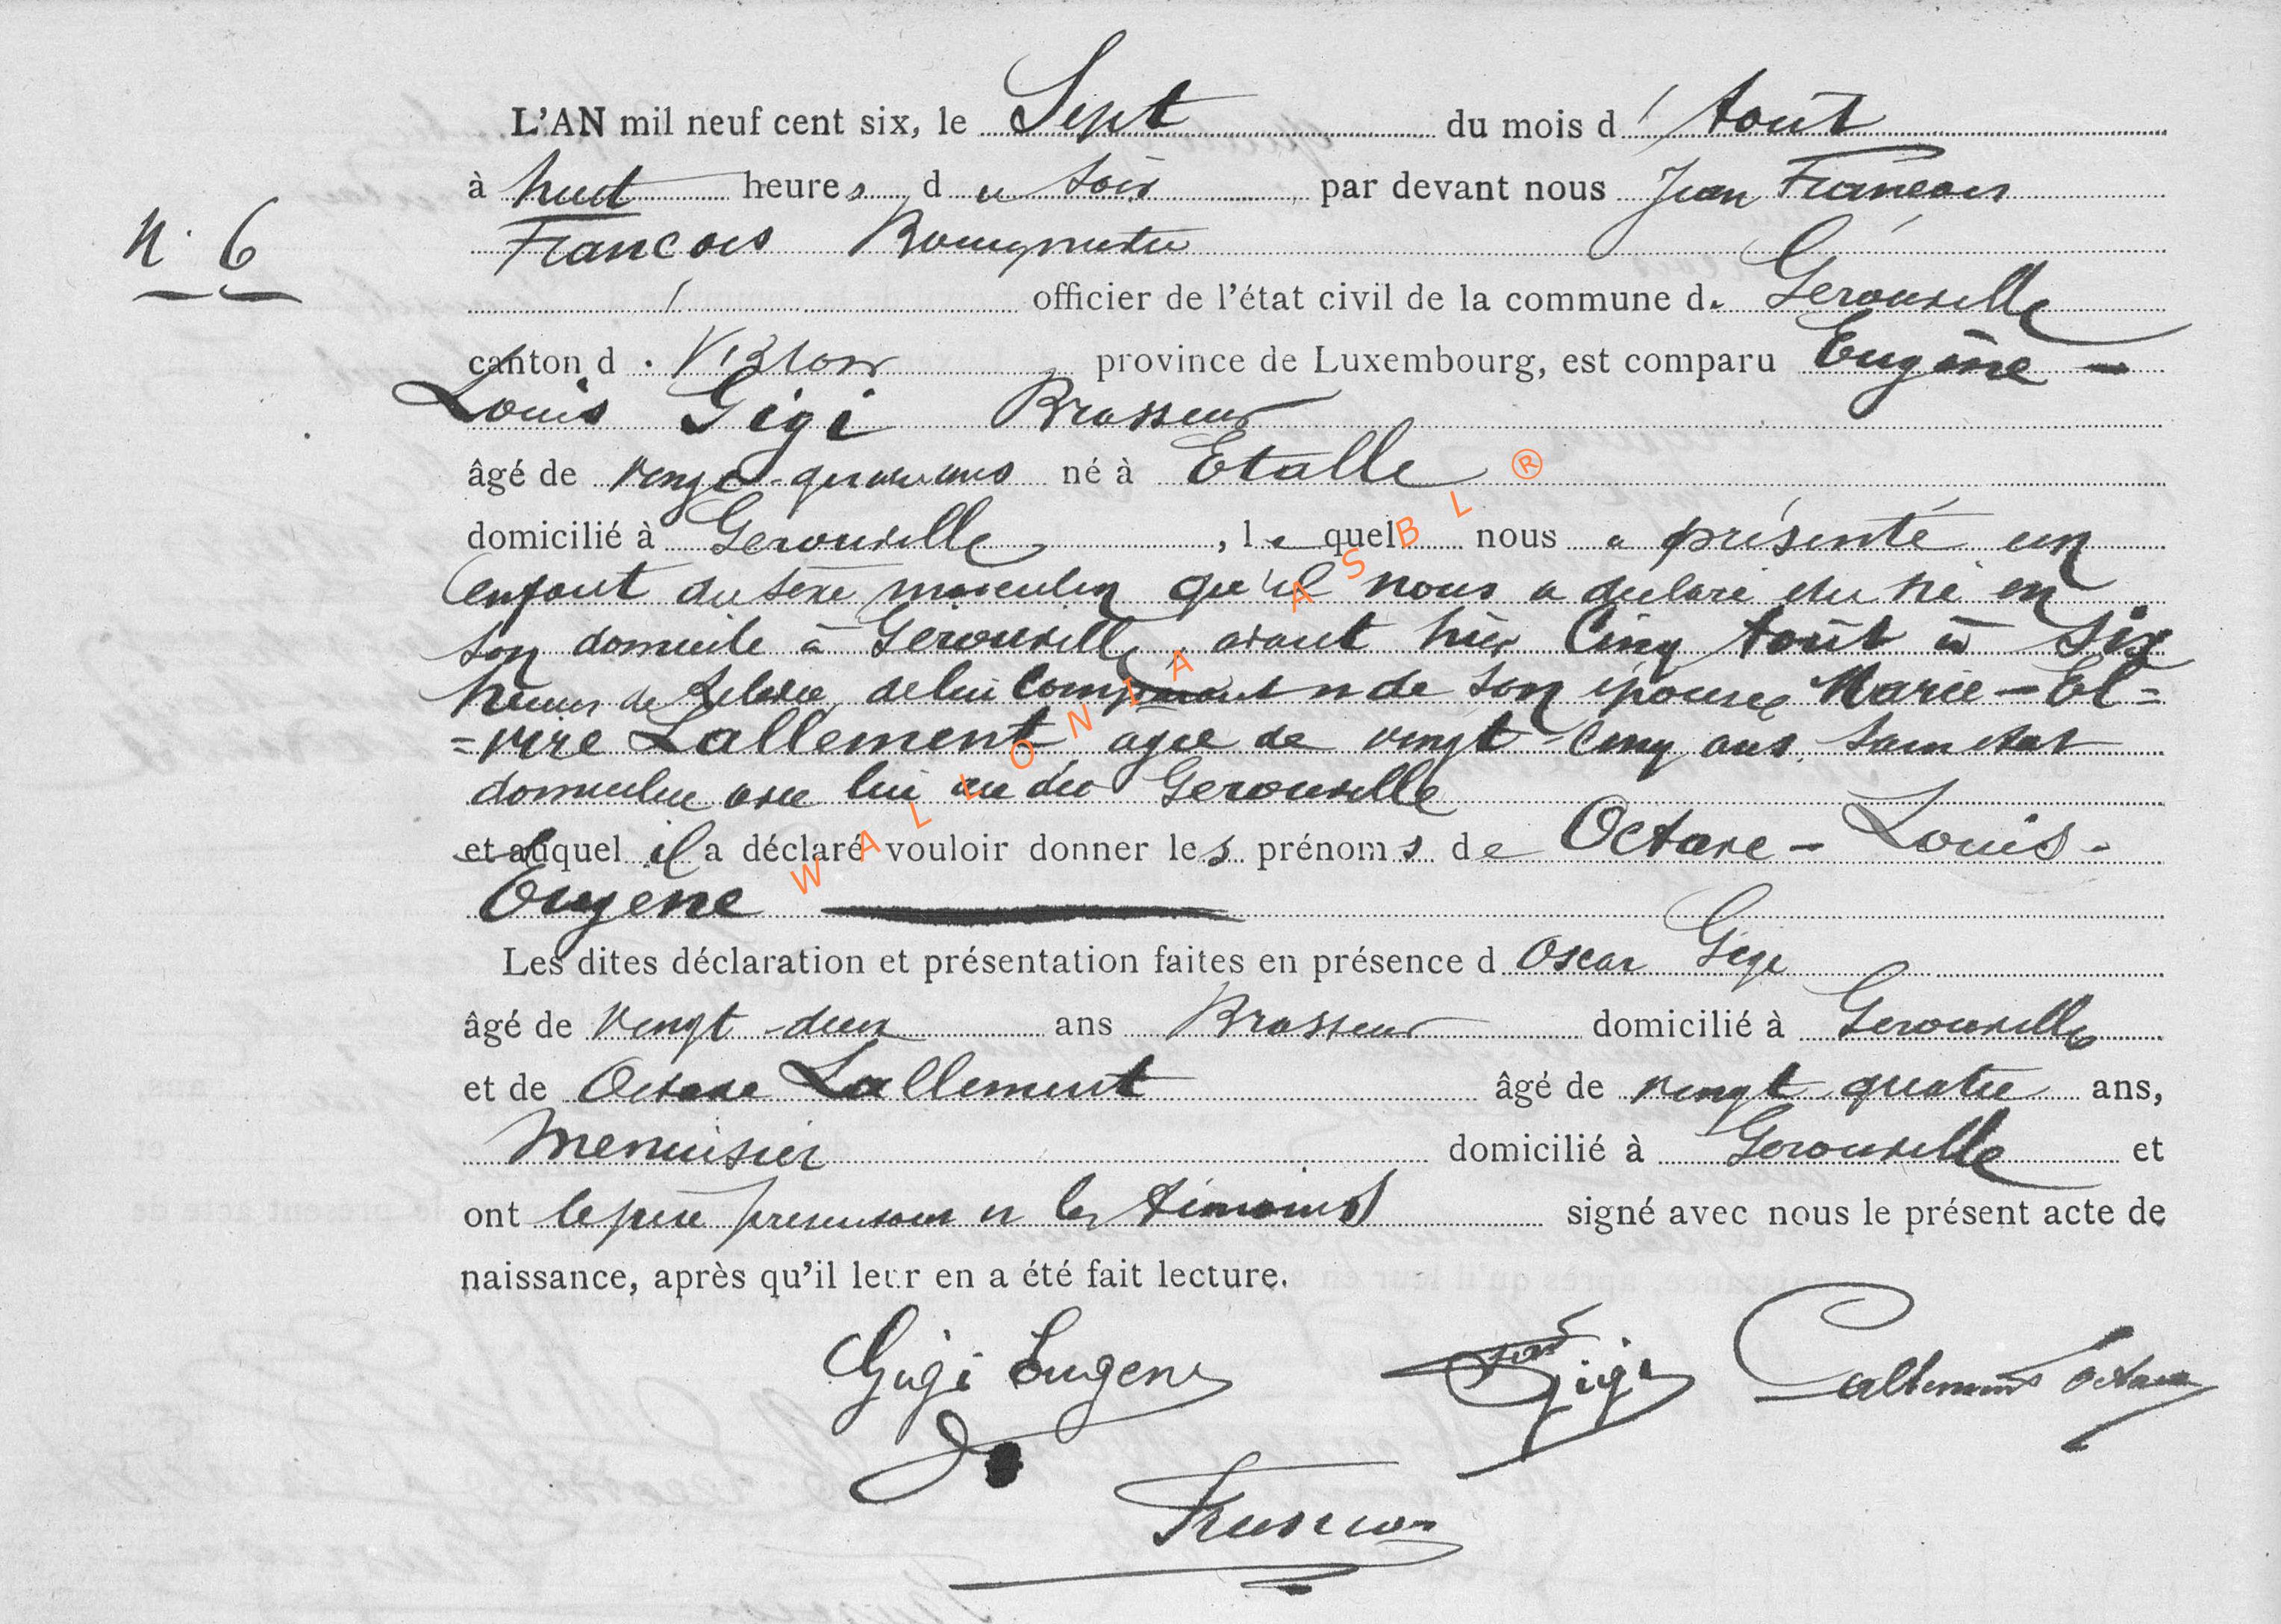 L'AN mil neuf cent six, le Sept du mois d' Août
à huit heures du soir par devant nous Jean François
N. 6
François
officier de l'état civil de la commune de Gerouville
canton de Virton province de Luxembourg, est comparu Eugène -
Louis Gigi Brasseur
âgé de né à Etalle
domicilié à Gerouville, lequel nous a présenté un
enfant du sexe masculin qu'il nous a declaré etre né en
son domicile à Gerouville avant hier Cinq Août à six
heures de de lui et de son épouse Marie - El=
=vire Lallement agée de vingt cinq ans, sans etat
domiciliée avec lui au dit Gerouville
et auquel il a déclaré vouloir donner les prénoms de Octave - Louis -
Eugène
Les dites déclaration et présentation faites en présence d Oscar Gigi
âgé de vingt-deux ans Brasseur domicilié à Gerouville
et de Octave Lallement âgé de vingt quatre ans,
Menuisier domicilié à Gerouville et
ont le père et les témoins signé avec nous le présent acte de
naissance, après qu'il leur en a été fait lecture.
Gigi Eugène Gigi Lallement Octave
WALLONIA ASBL ®